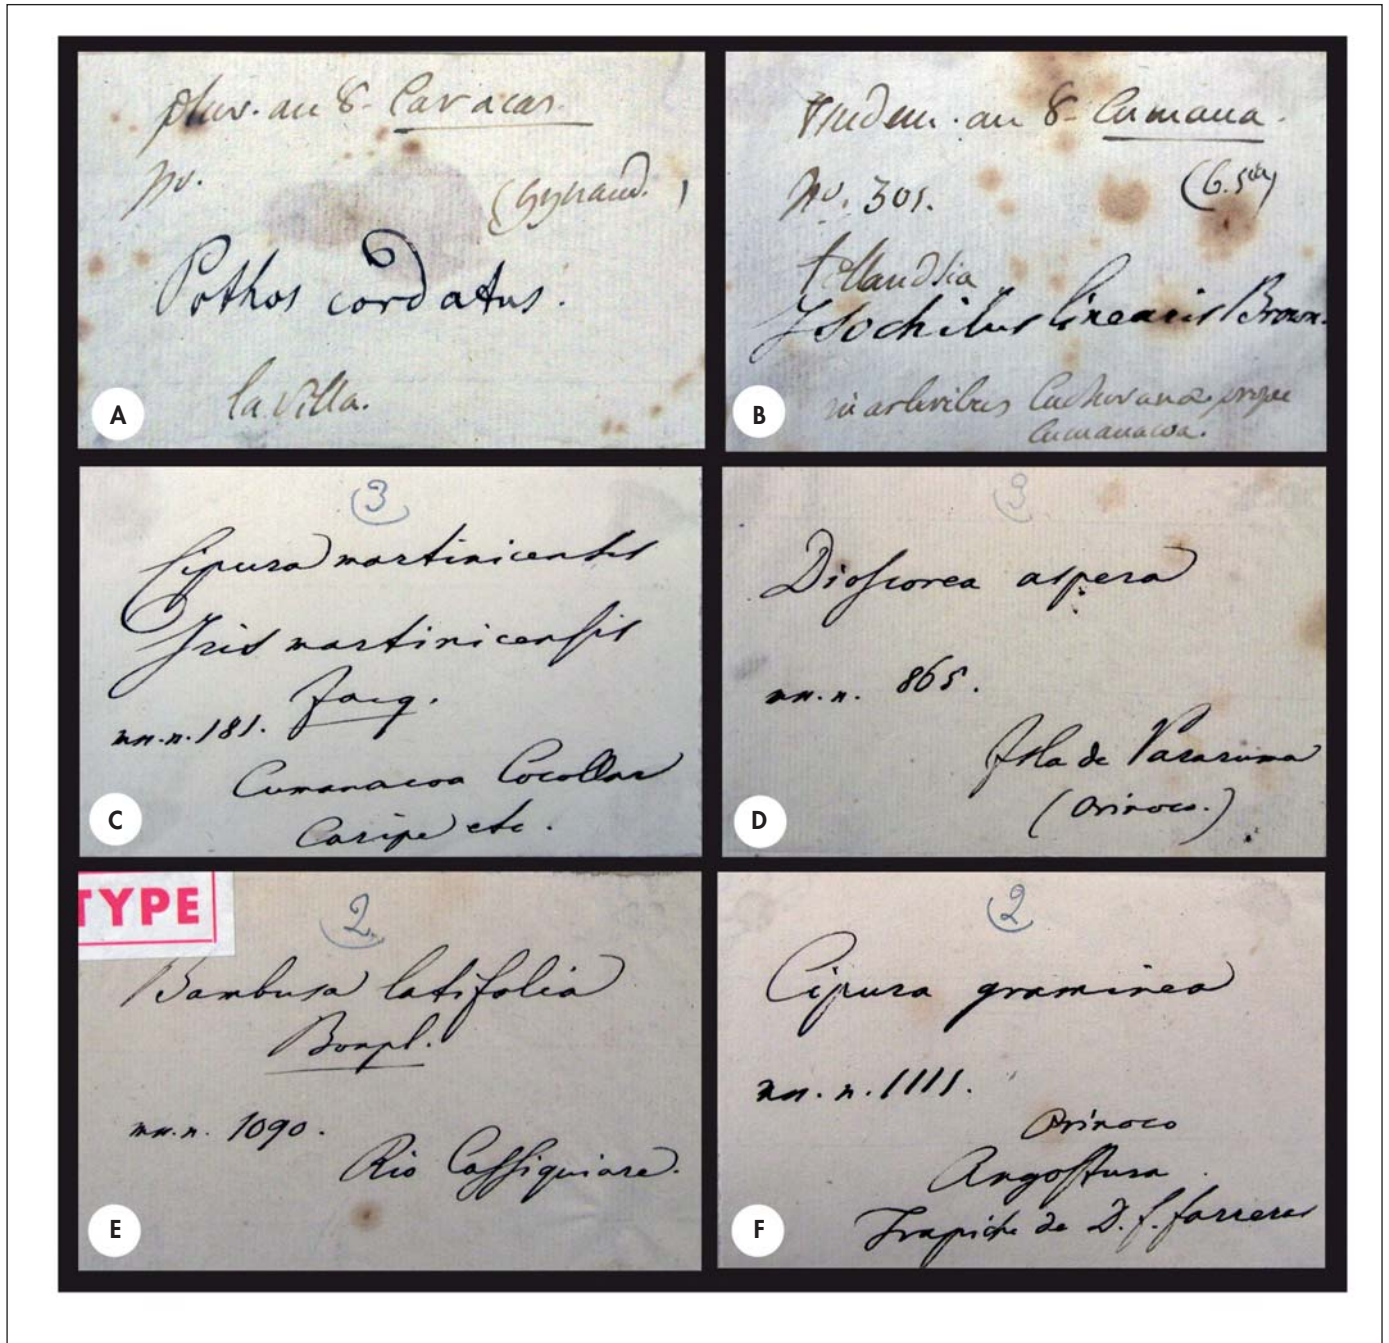 pluv. au 8. Caracas.
no.
(Gynand. )
Pothos cordatus.
la Villa.
A
au 8. Cumana.
no. 301.
(G. 5
tillandsia
Isochilus linearis Brown.
in arboribus prope
Cumanacoa.
B
3
Cipura martinicensis
Iris martinicensis
Jacq.
mn. n. 181.
Cumanacoa Cocollar
Caripe etc.
C
3
Dioscorea aspera
mn. n. 865.
Isla de Pararuma
(Orinoco.)
D
TYPE
2
Bambusa latifolia
Bonpl.
mn. n. 1090.
Rio Cassiquiare.
E
2
Cipura graminea
mn. n. 1111.
Orinoco
Angostura
Trapiche de D. f. farreras
F